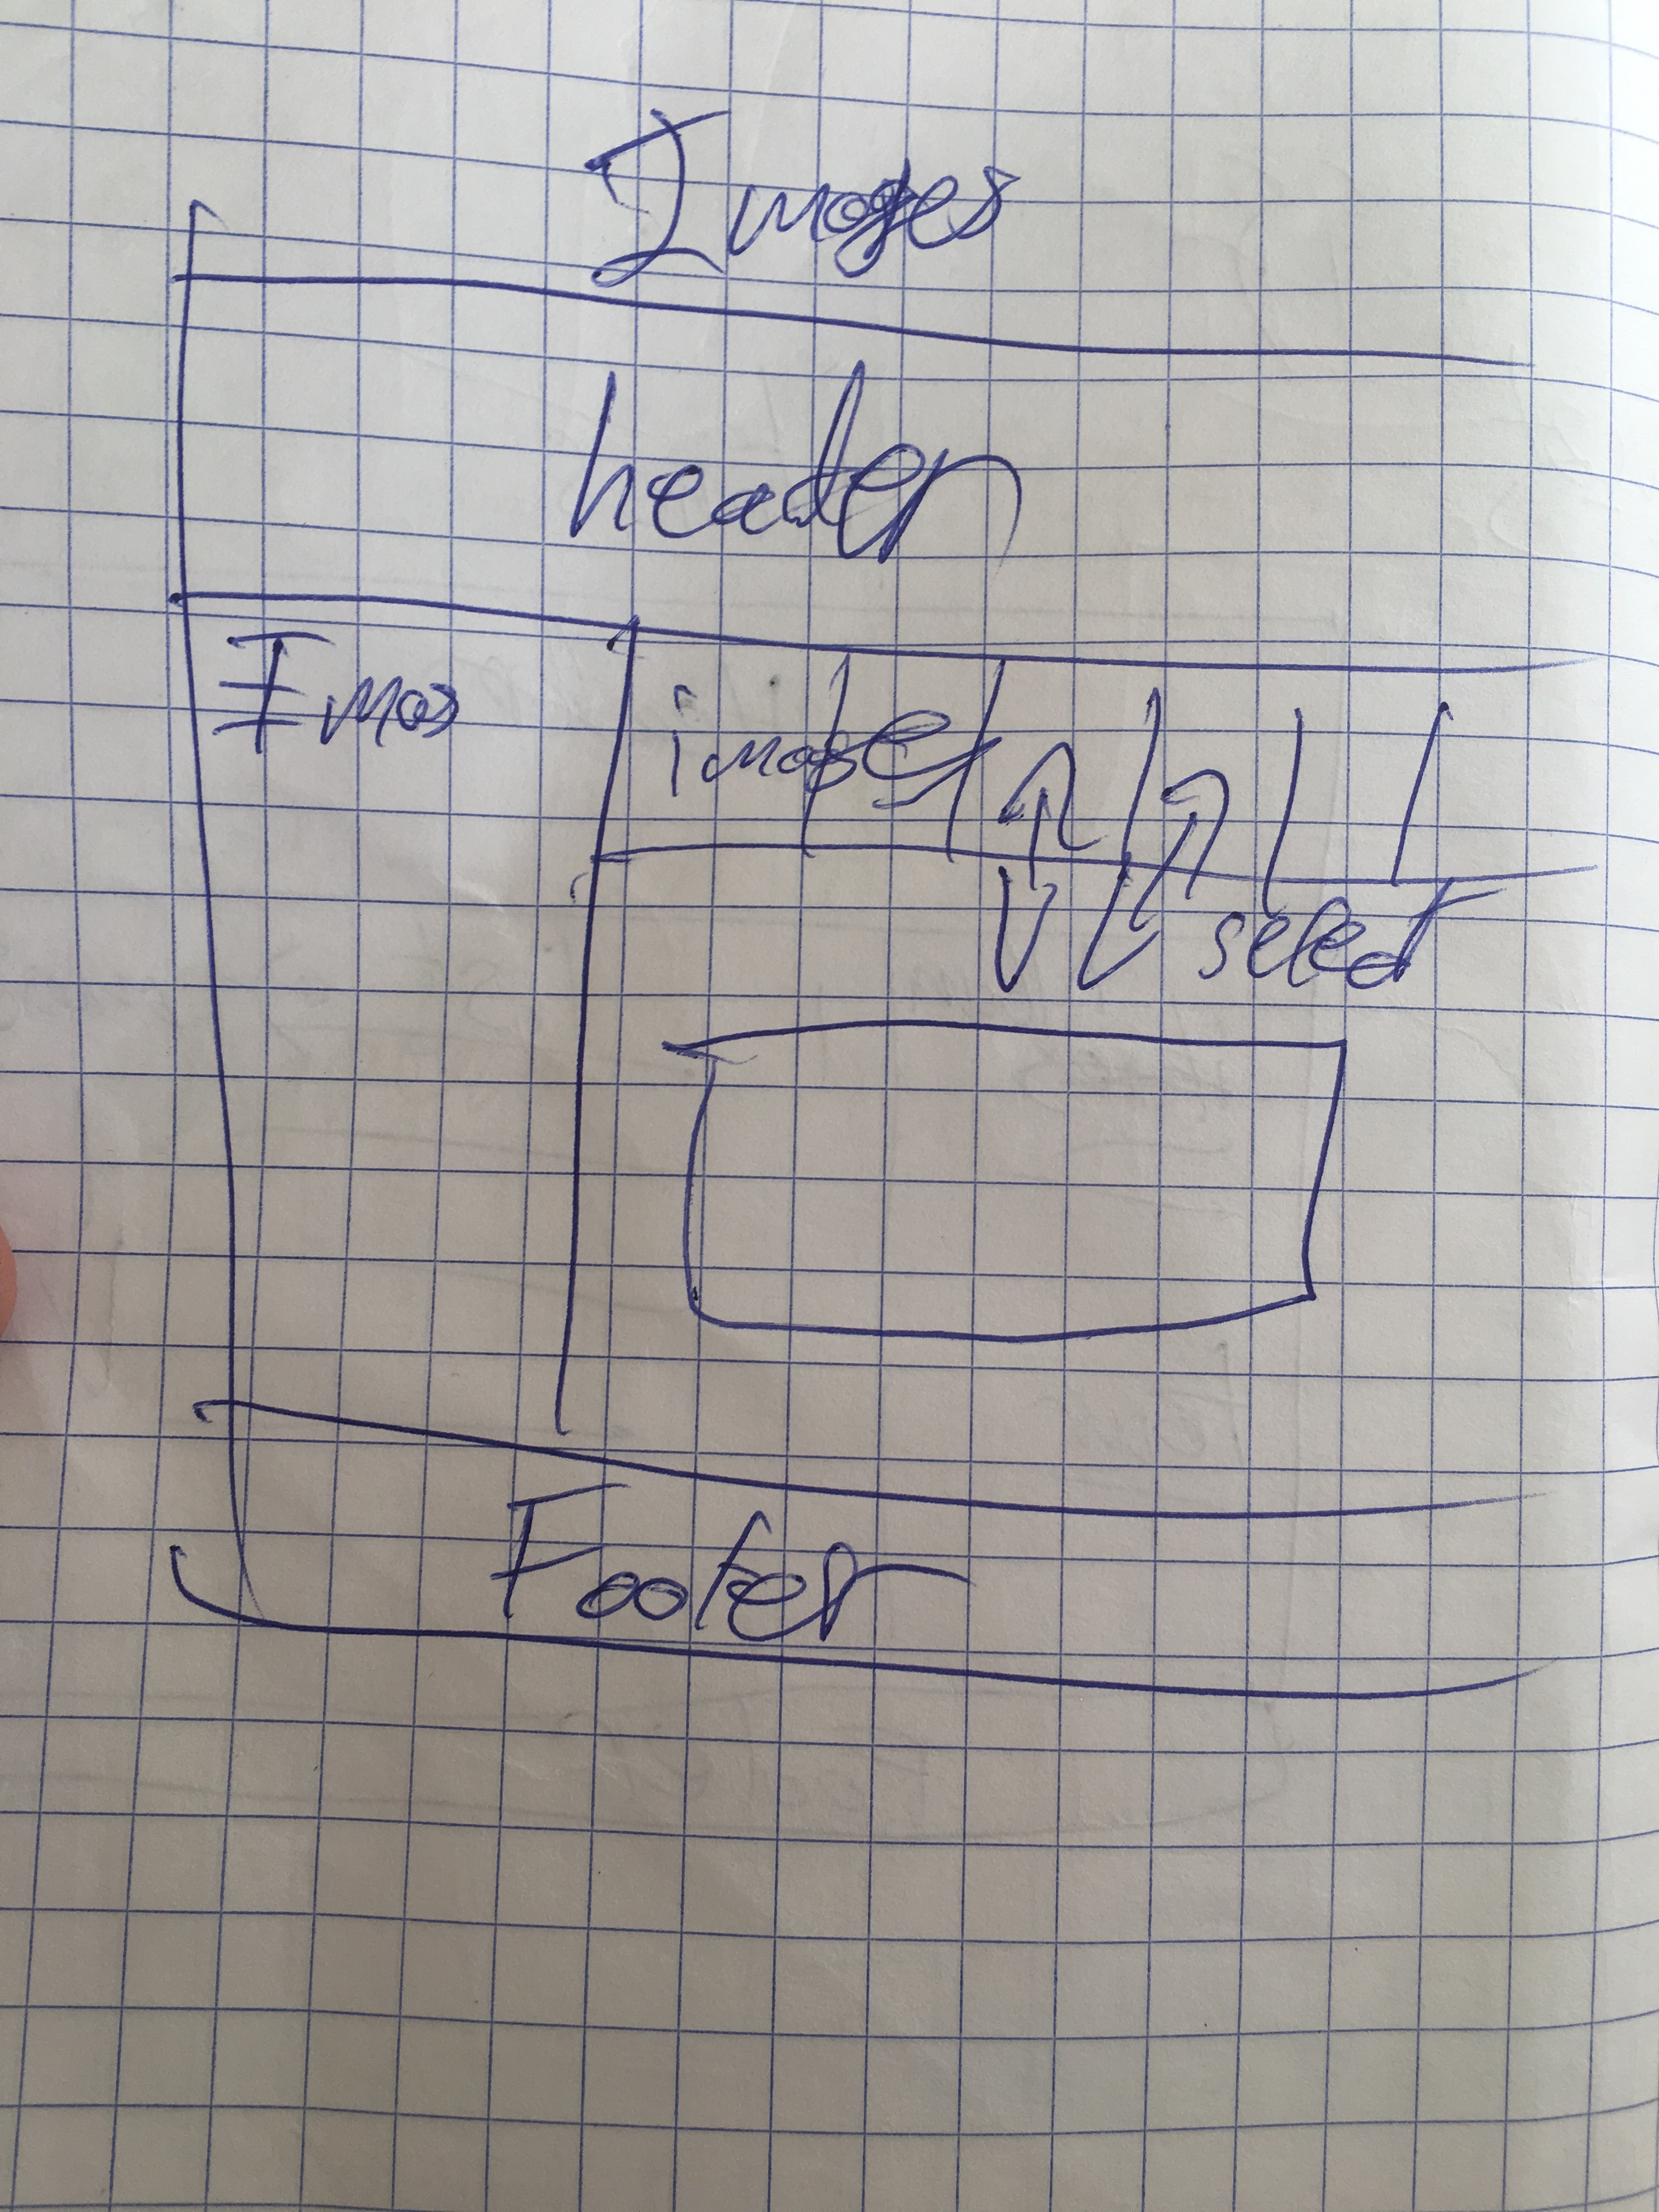 Images
header
Imas
images
select
Footer